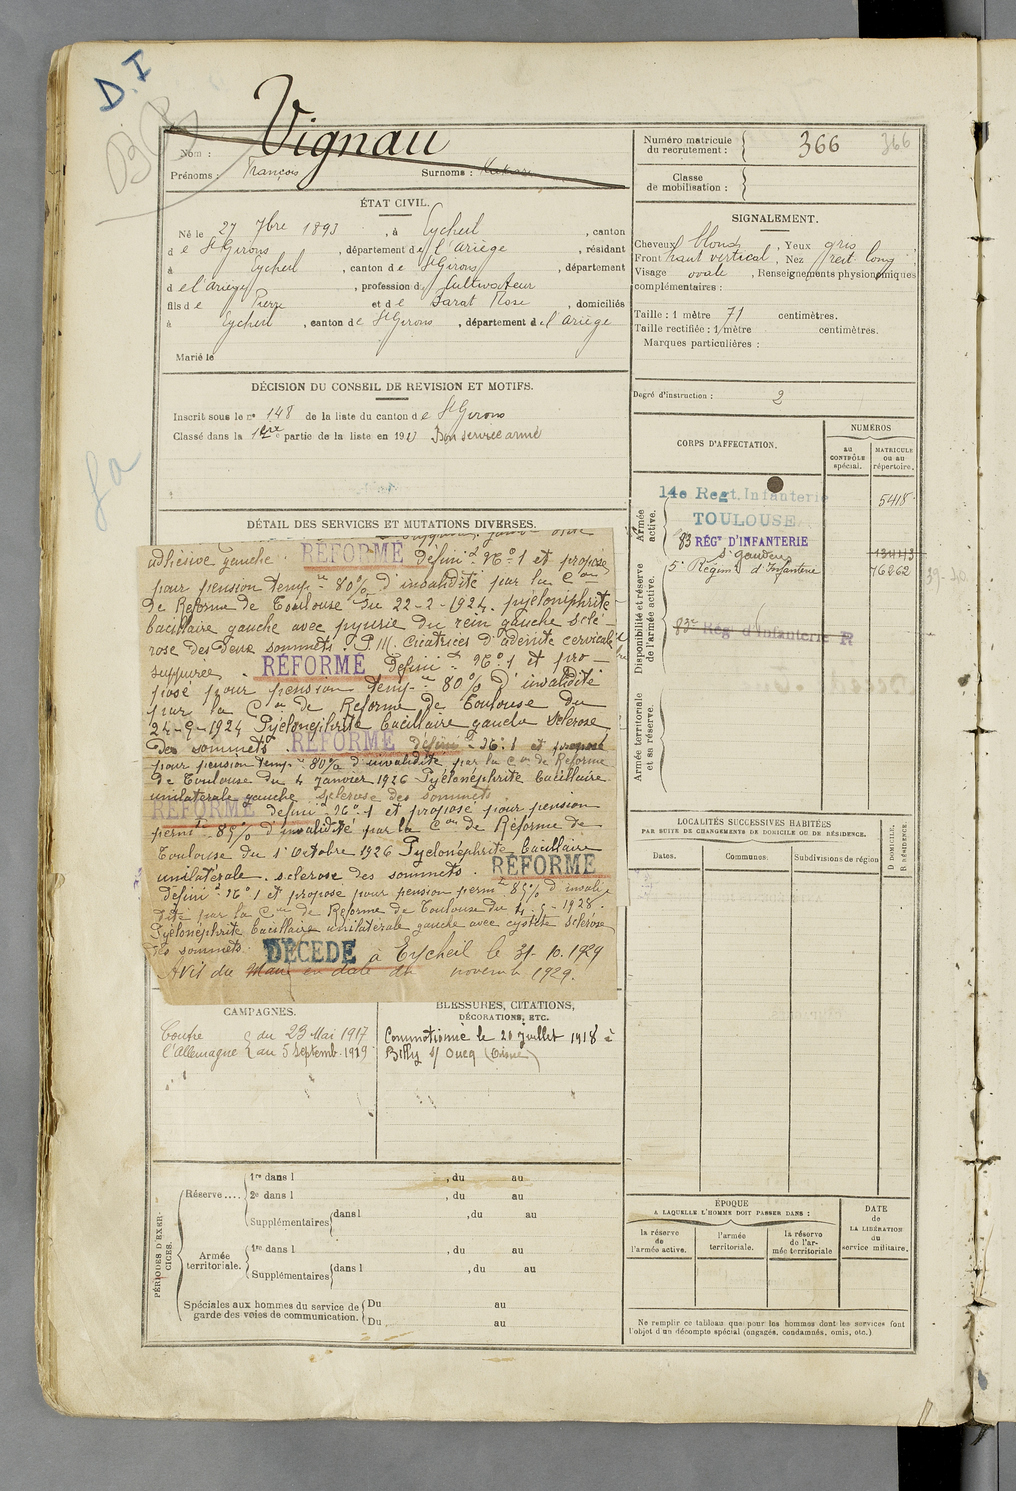 D.I
Vignau
Nom :
Prénoms : François Surnoms :
ÉTAT CIVIL.
Né le 27 7bre 1893, à Eycheil, canton
de St Girons, département de l'Ariège, résidant
à Eycheil, canton de St Girons, département
de l'Ariège, profession de Cultivateur
fils de Pierre et de Sarat Rose, domiciliés
à Eycheil, canton de St Girons, département de l'Ariège
Marié le
DÉCISION DU CONSEIL DE REVISION ET MOTIFS.
Inscrit sous le n° 148 de la liste du canton de St Girons
Classé dans la 1ère partie de la liste en 1913 Bon service armé
DÉTAIL DES SERVICES ET MUTATIONS DIVERSES.
adhésive gauche. RÉFORMÉ définit n° 1 et proposé
pour pension temp-re 80% d'invalidité par la Con
de Réforme de Toulouse du 22-2-1924. pyélonéphrite
bacillaire gauche avec pyurie du rein gauche sclé-
rose des deux sommets. P.M. Cicatrices d'adénite cervicale
suppurée. RÉFORMÉ définit n° 1 et pro-
posé pour pension temp-re 80% d'invalidité
par la Con de Réforme de Toulouse du
24-9-1924 Pyélonéphrite bacillaire gauche sclérose
des sommets. RÉFORMÉ définit n° 1 et proposé
pour pension temp-re 80% d'invalidité par la Con de Réforme
de Toulouse du 4 janvier 1926 Pyélonéphrite bacillaire
unilatérale gauche sclérose des sommets.
RÉFORMÉ définit n° 1 et proposé pour pension
permte 85% d'invalidité par la Con de Réforme de
Toulouse du 1 Octobre 1926 Pyélonéphrite bacillaire
unilatérale. sclérose des sommets. RÉFORMÉ
définit n° 1 et proposé pour pension permte 85% d'invali-
dité par la Con de Réforme de Toulouse du 4-5-1928.
Pyélonéphrite bacillaire unilatérale gauche avec cystite sclérose
des sommets. DÉCÉDÉ à Eycheil le 31-10-1929
Avis du Maire en date du novemb 1929.
CAMPAGNES.
Contre l'Allemagne du 23 Mai 1917
au 5 Septemb. 1919
BLESSURES, CITATIONS,
DÉCORATIONS, ETC.
Commotionné le 20 juillet 1918 à
Billy s/ Oucq (Aisne)
PÉRIODES D'EXERCICES.
Réserve....
1re dans l , du au
2e dans l , du au
Supplémentaires dans l , du au
Armée territoriale.
1re dans l , du au
Supplémentaires dans l , du au
Spéciales aux hommes du service de
garde des voies de communication.
Du au
Du au
Numéro matricule
du recrutement : 366 366
Classe
de mobilisation :
SIGNALEMENT.
Cheveux blonds, Yeux gris,
Front haut vertical, Nez rect. long,
Visage ovale, Renseignements physionomiques
complémentaires :
Taille : 1 mètre 71 centimètres.
Taille rectifiée : 1 mètre centimètres.
Marques particulières :
Degré d'instruction : 2
CORPS D'AFFECTATION.
NUMÉROS
AU CONTRÔLE spécial.
MATRICULE OU AU répertoire.
Armée active.
14e Regt. Infanterie 5418
TOULOUSE
83 RÉGt D'INFANTERIE
St Gaudens
Disponibilité et réserve de l'armée active.
5e Régim d'Infanterie 76262
83e Rég d'Infanterie R
Armée territoriale et sa réserve.
LOCALITÉS SUCCESSIVES HABITÉES
PAR SUITE DE CHANGEMENTS DE DOMICILE OU DE RÉSIDENCE.
Dates. Communes. Subdivisions de région
D DOMICILE.
R RÉSIDENCE.
ÉPOQUE
A LAQUELLE L'HOMME DOIT PASSER DANS :
la réserve de l'armée active.
l'armée territoriale.
la réserve de l'armée territoriale
DATE
de
LA LIBÉRATION
du
service militaire.
Ne remplir ce tableau que pour les hommes dont les services font
l'objet d'un décompte spécial (engagés, condamnés, omis, etc.)